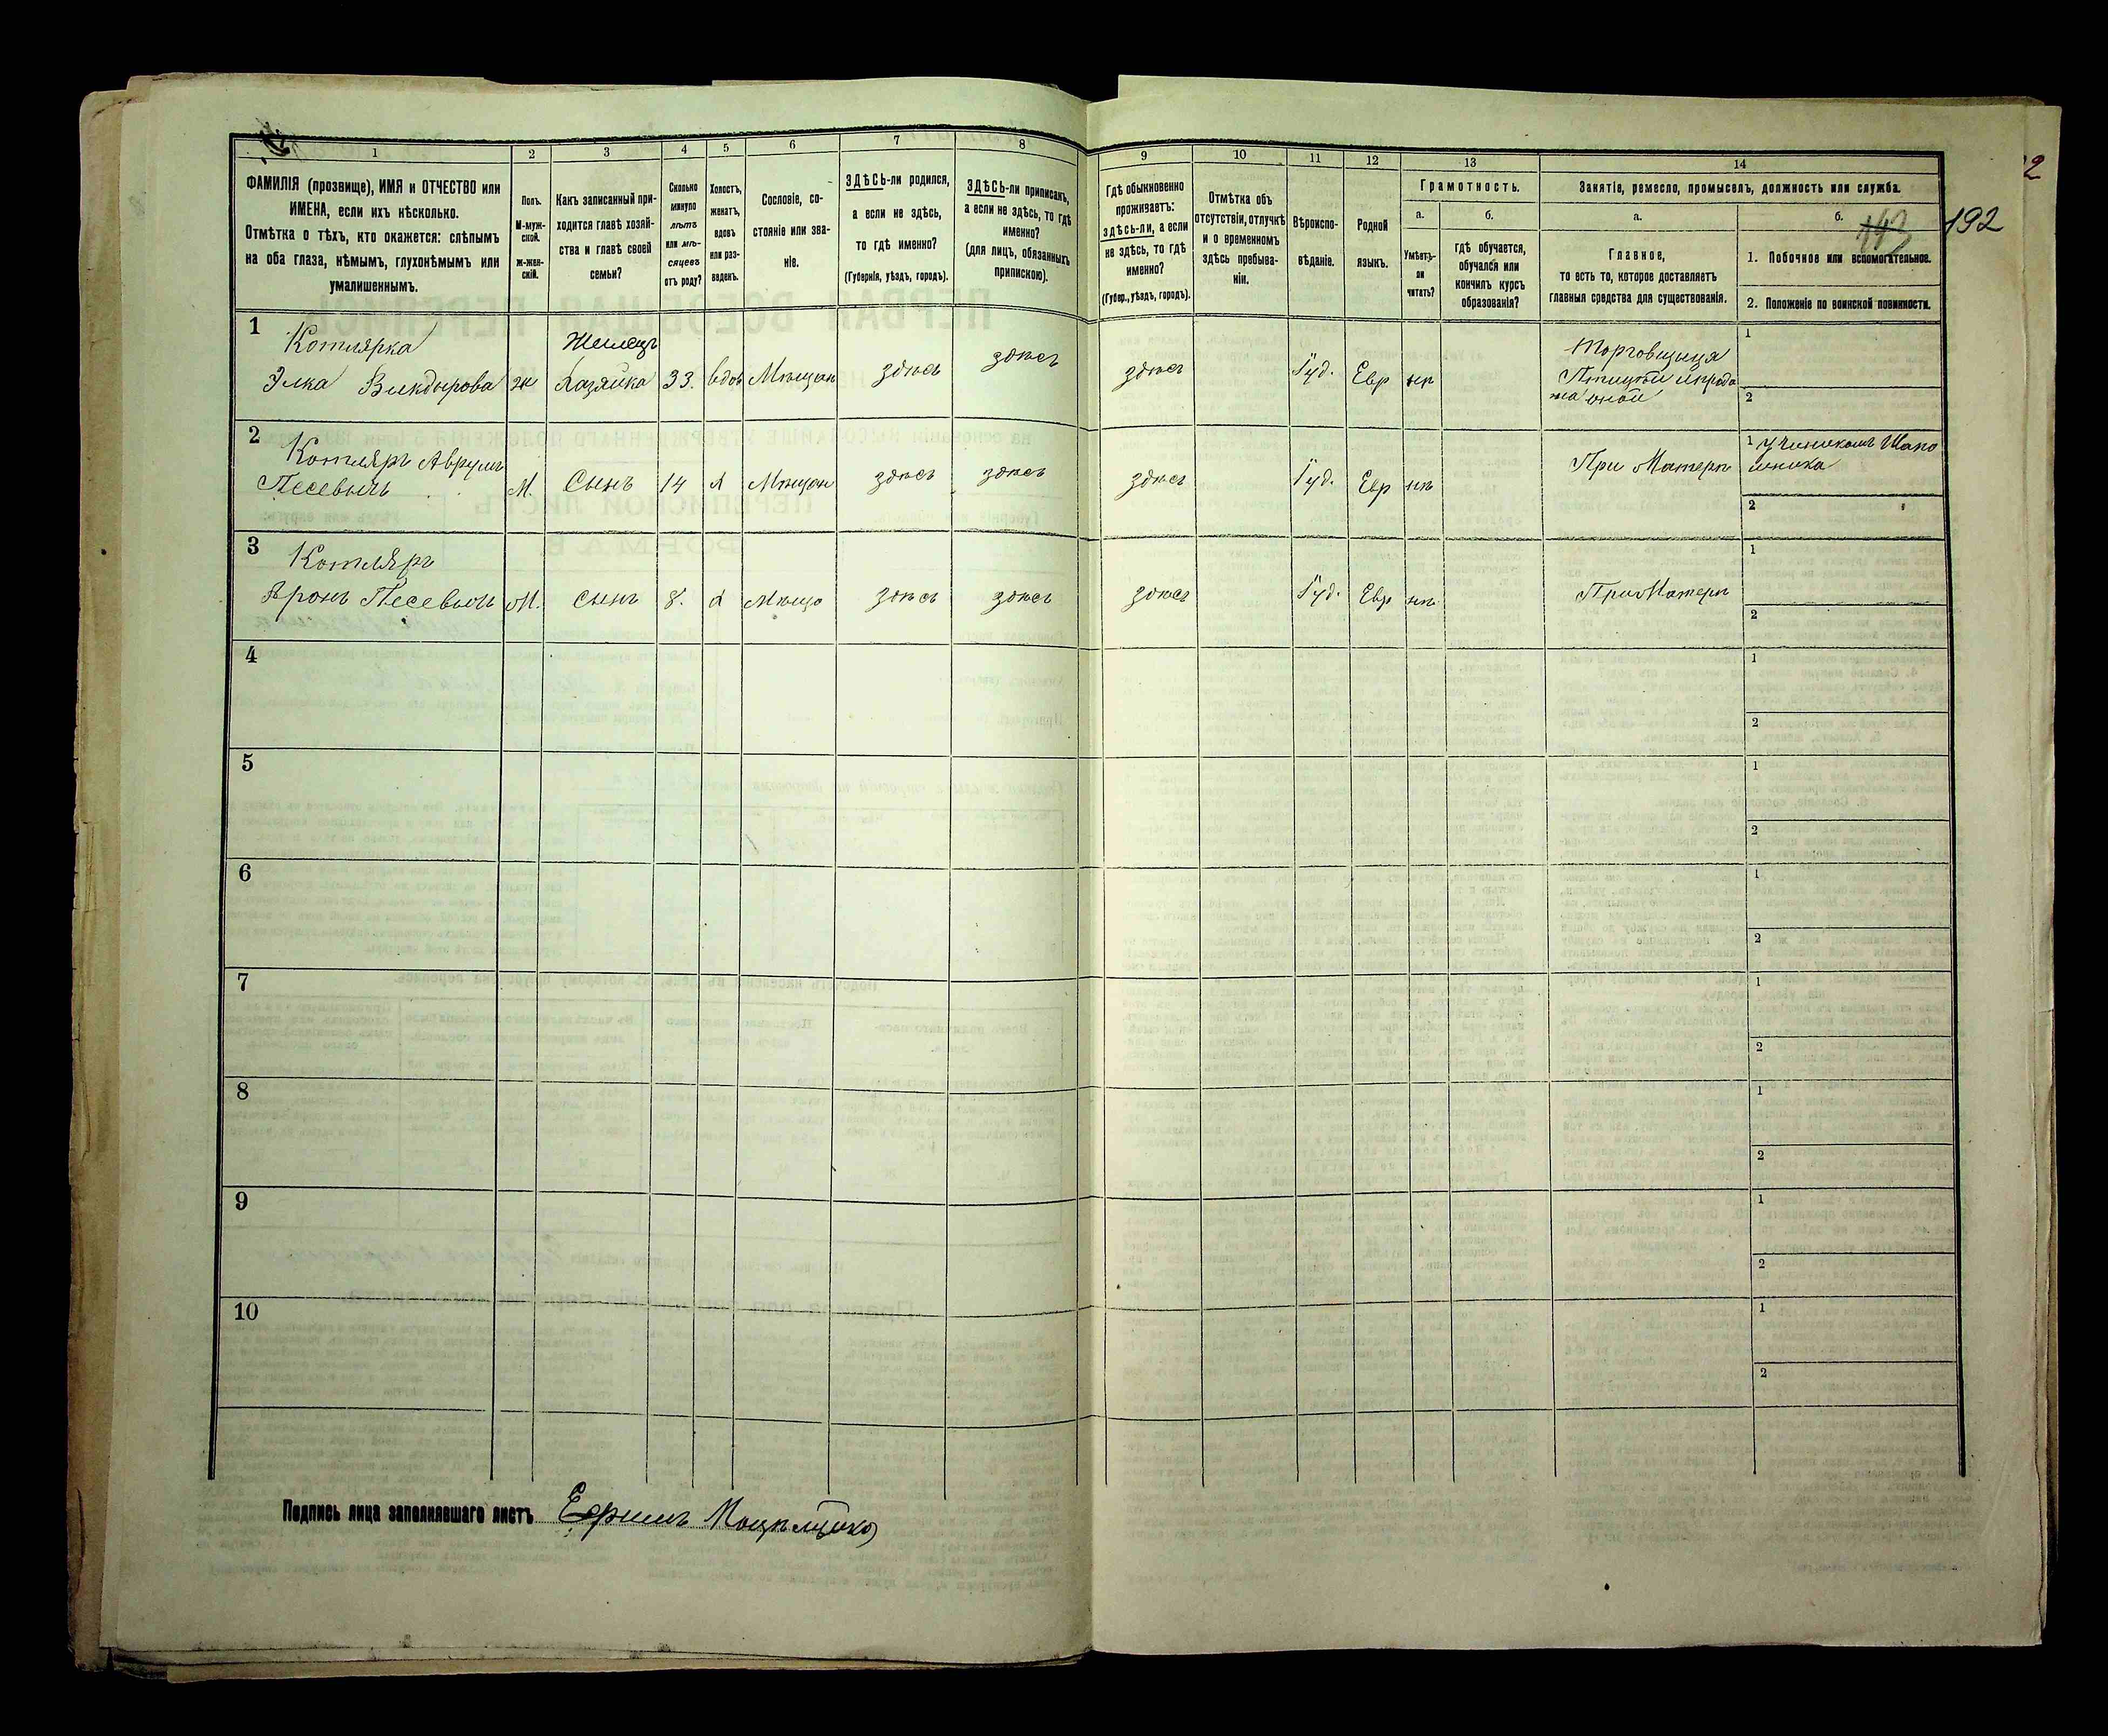 1
2
3
4
5
6
7
8
ФАМИЛІЯ (прозвище), ИМЯ и ОТЧЕСТВО или
ИМЕНА, если ихъ нѣсколько.
Отмѣтка о тѣхъ, кто окажется: слѣпымъ
на оба глаза, нѣмымъ, глухонѣмымъ или
умалишеннымъ.
Полъ.
М-муж-
ской.
ж-жен-
скій.
Какъ записанный при-
ходится главѣ хозяй-
ства и главѣ своей
семьи?
Сколько
минуло
лѣтъ
или мѣ-
сяцевъ
отъ роду?
Холостъ,
женатъ,
вдовъ
или раз-
веденъ.
Сословіе, со-
стояніе или зва-
ніе.
ЗДѢСЬ-ли родился,
а если не здѣсь,
то гдѣ именно?
(Губернія, уѣздъ, городъ).
ЗДѢСЬ-ли приписанъ,
а если не здѣсь, то гдѣ
именно?
(для лицъ, обязанныхъ
припискою).
9
10
11
12
13
14
Гдѣ обыкновенно
проживаетъ:
здѣсь-ли, а если
не здѣсь, то гдѣ
именно?
(Губер., уѣздъ, городъ).
Отмѣтка объ
отсутствіи, отлучкѣ
и о временномъ
здѣсь пребыва-
ніи.
Вѣроиспо-
вѣданіе.
Родной
языкъ.
Грамотность.
а.
б.
Умѣетъ-
ли
читать?
гдѣ обучается,
обучался или
кончилъ курсъ
образованія?
Занятіе, ремесло, промыселъ, должность или служба.
а.
б.
Главное,
то есть то, которое доставляетъ
главныя средства для существованія.
1. Побочное или вспомогательное.
2. Положеніе по воинской повинности.
192
1
Котлярка
Элка
ж
Хазяйка
33.
вдов
Мѣщан
здѣсь
здѣсь
здѣсь
Іуд.
Евр
нѣ
Торговщица
1
2
2
Котляръ Аврумъ
Песевичъ
М.
Сынъ
14
Х
Мѣщан
здѣсь
здѣсь
здѣсь
Іуд.
Евр
нѣ
При Матери
1
2
3
Котляръ
Аронъ Песевичъ
М.
сынъ
8.
Х
Мѣща
здѣсь
здѣсь
здѣсь
Іуд.
Евр
нѣ
При Матери
1
2
4
1
2
5
1
2
6
1
2
7
1
2
8
1
2
9
1
2
10
1
2
Подпись лица заполнявшаго листъ